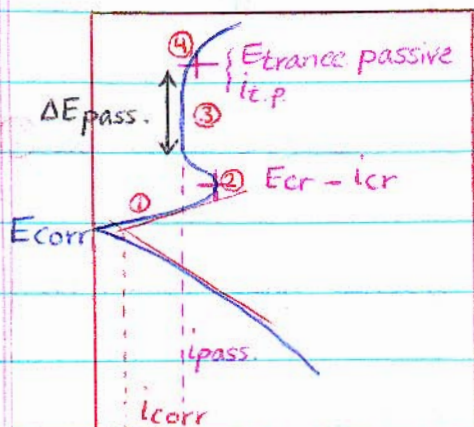 ④ Etrance passive
it.p.
ΔEpass.
③
② Ecr - icr
①
Ecorr
ipass.
icorr